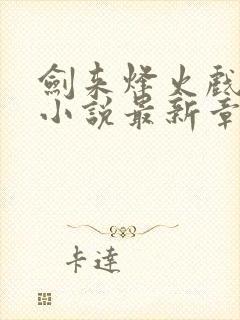 劍来烽火戲
小說最新章
卡達